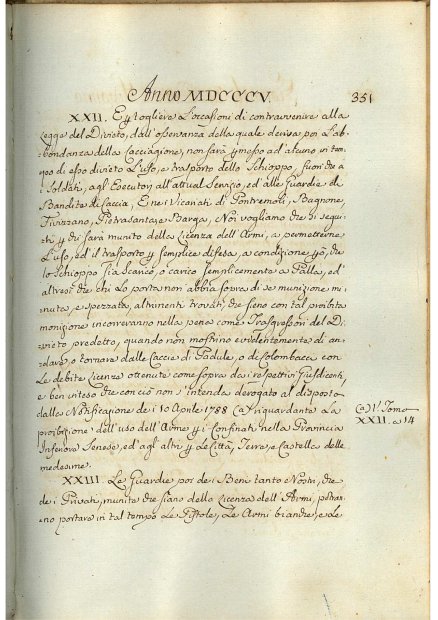 Anno MDCCCV.
351
XXII. E p togliere L'occasioni di contravvenire alla
Legge del Divieto, dall'osservanza della quale deriva poi L'ab-
bondanza della Cacciagione, non sarà pmesso ad alcuno in tem-
po di esso divieto L'uso, e trasporto dello Schioppo, fuori che a
i Soldati, agl'Esecutori all'attual Servizio, ed alle Guardie di
Bandite di Caccia, E nei Vicariati di Pontremoli, Bagnone,
Fivizzano, Pietrasanta, e Barga, Noi vogliamo che si segui-
ti p chi sarà munito della Licenza dell'Armi, a permetterne
L'uso, ed il trasporto p semplice difesa, a condizione però, che
lo Schioppo sia Scarico, o carico semplicemente a Palla, ed
altresì che chi Lo porta non abbia sopra di se munizione mi-
nuta, e spezzata, altrimenti trovati, che sieno con tal proibita
monizione incorreranno nella pena come Trasgressori del Di-
vieto predetto, quando non mostrino evidentemente di an-
dare, o tornare dalle Caccie di Padule, o di Colombacci con
Le debite Licenze ottenute come sopra da i respettivi Giusdicenti,
e ben inteso che con ciò non s'intenda derogato al disposto
dalla Notificazione de i 10 Aprile 1788 (a) riguardante La
proibizione dell'uso dell'Arme p i Confinati nella Provincia
Inferiore Senese, ed agl'altri p Le Città, Terre, e Castella delle
medesime.
(a) V. Tomo
XXII. a 14
XXIII. Le Guardie poi de i Beni tanto Nostri, che
de i Privati, munite che siano della Licenza dell'Armi, potran-
no portare in tal tempo Le Pistole, Le Armi bianche, e Le